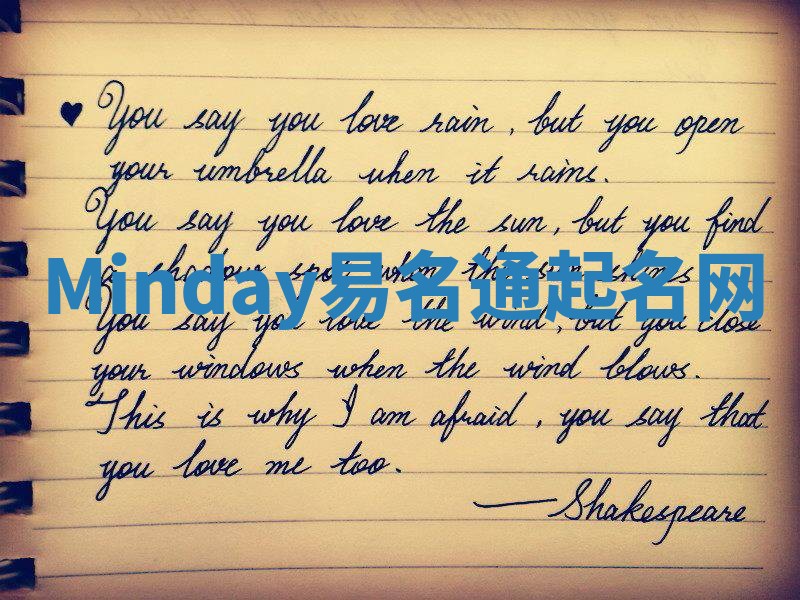 ♥ You say you love rain, but you open
your umbrella when it rains.
You say you love the sun, but you find
a shadow spot when the sun shines
Minday易名通起名网
You say you love the wind, but you close
your windows when the wind blows.
This is why I am afraid, you say that
you love me too.
—Shakespeare